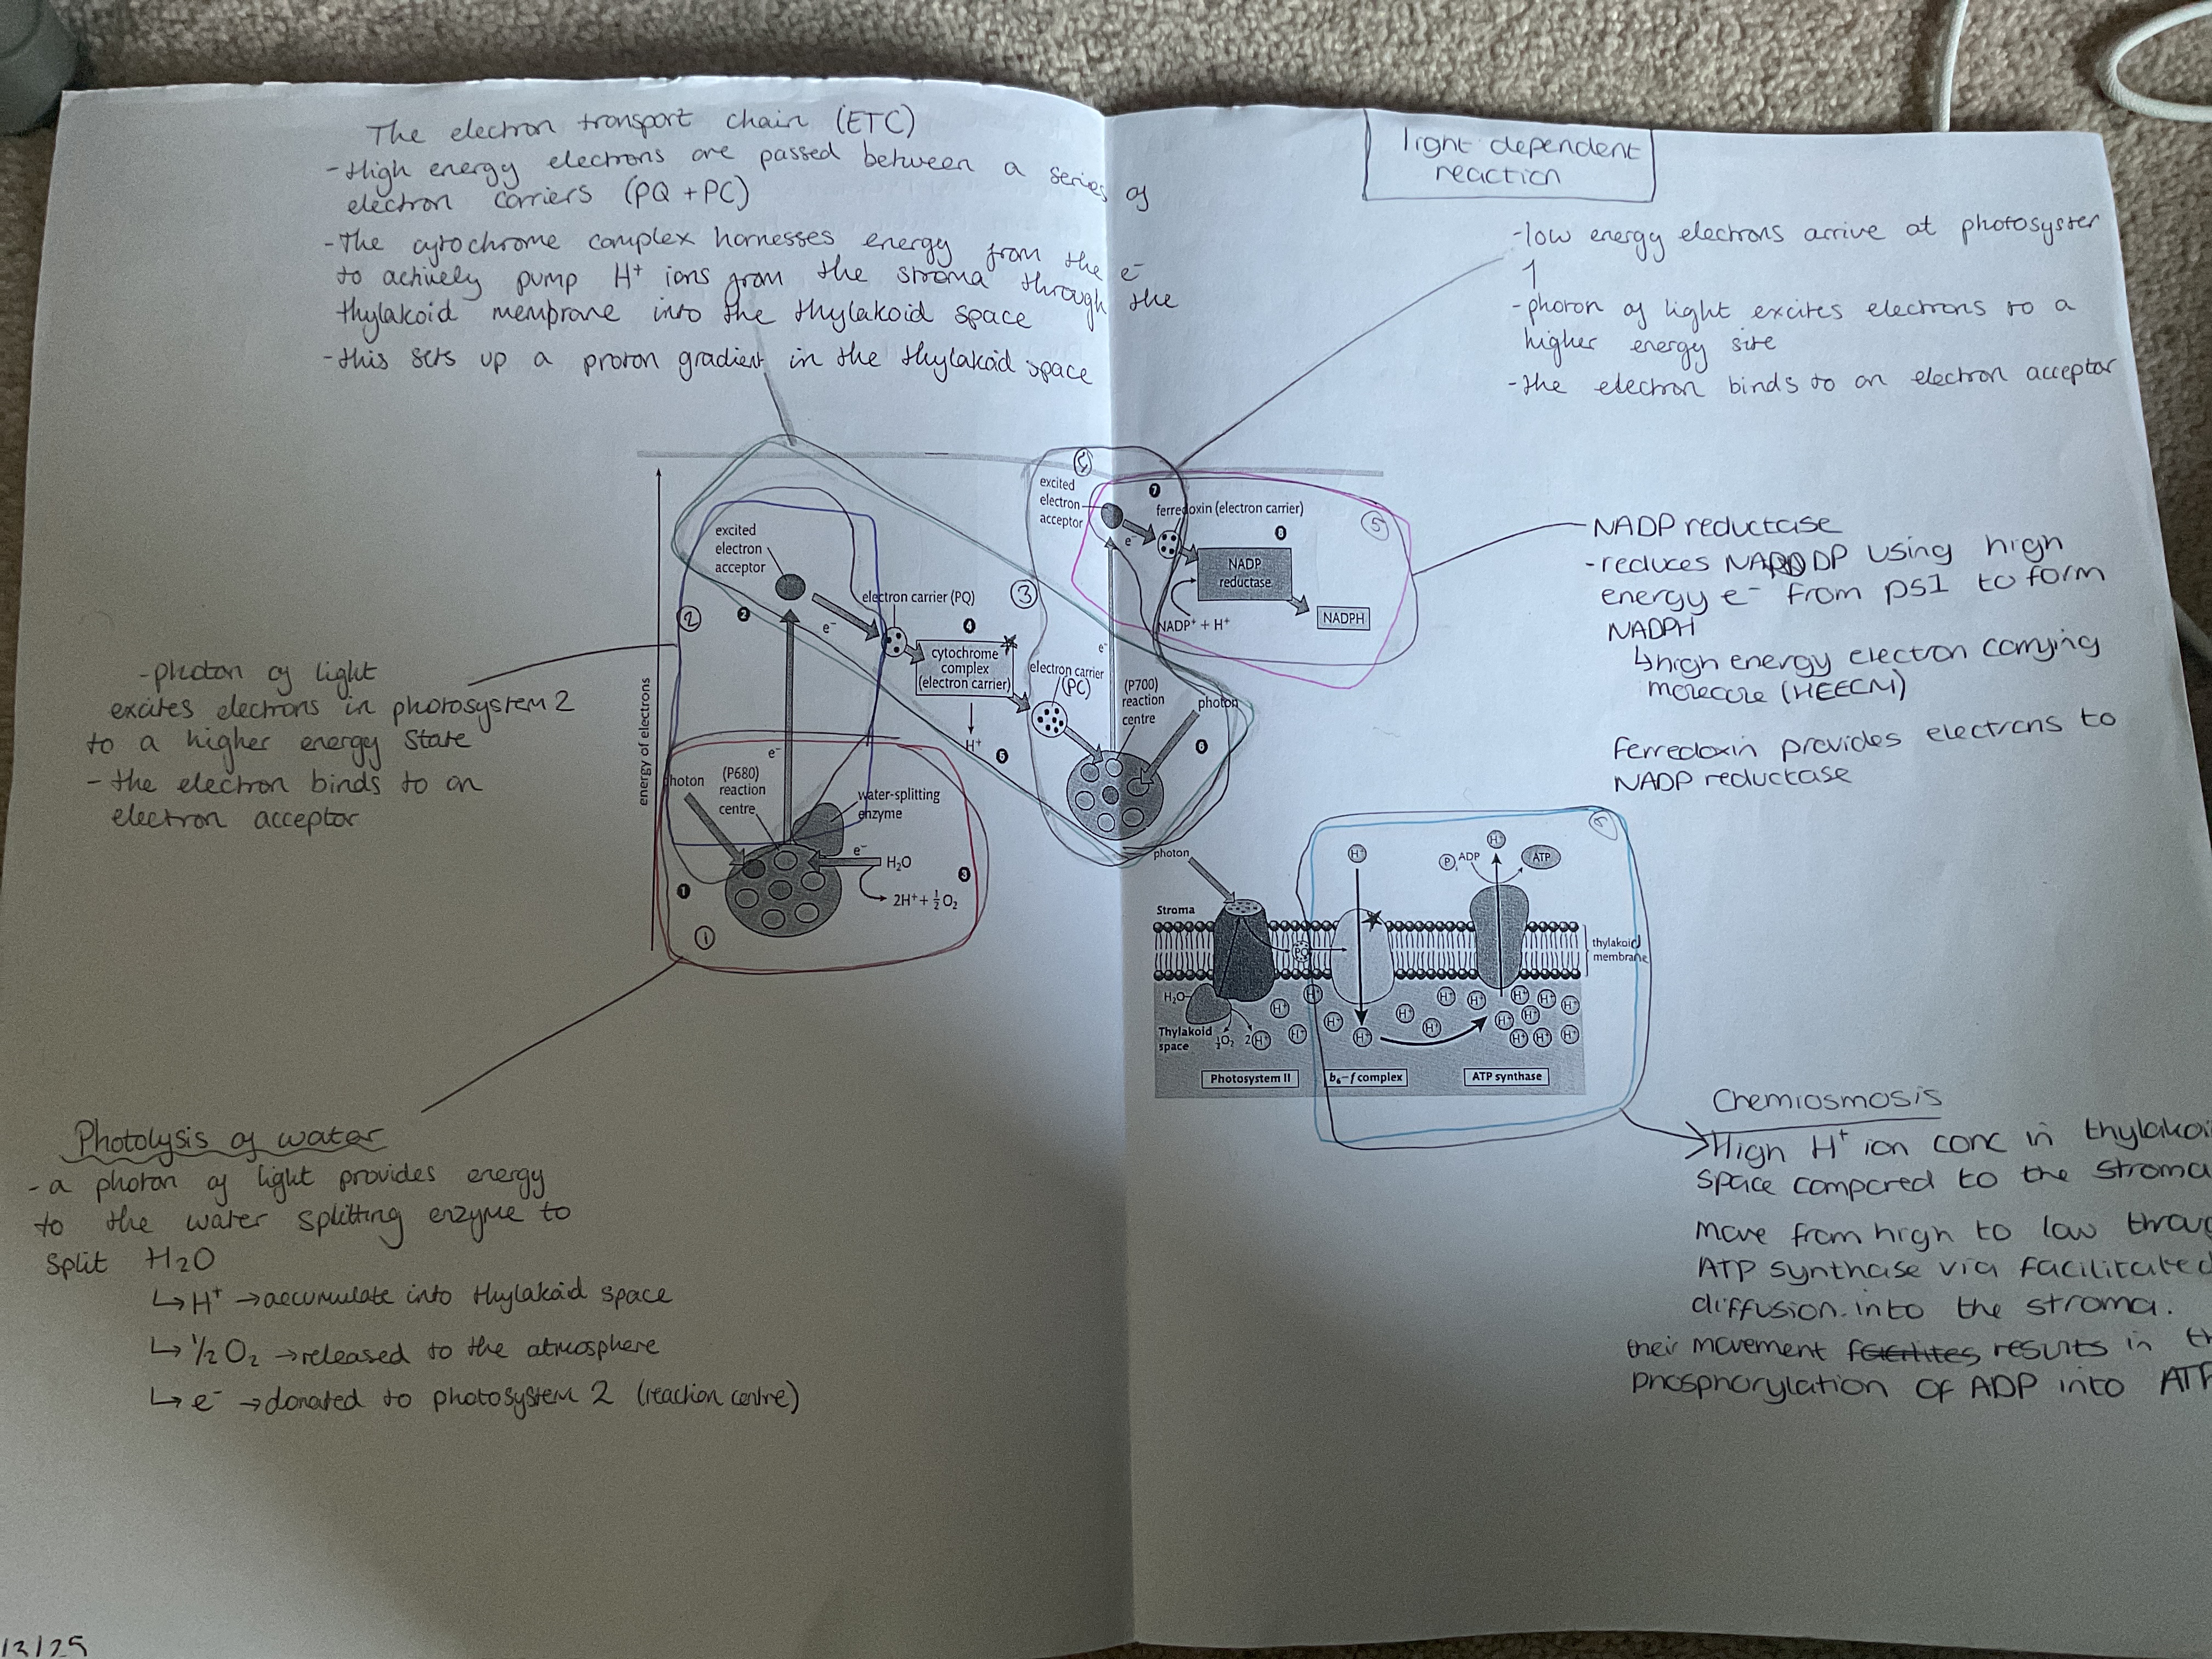 The electron transport chain (ETC)
-High energy electrons are passed between a series of
electron carriers (PQ + PC)
-The cytochrome complex harnesses energy from the e⁻
to actively pump H⁺ ions from the stroma through the
thylakoid membrane into the thylakoid space
-this sets up a proton gradient in the thylakoid space
light dependent
reaction
-low energy electrons arrive at photosyster
1
-photon of light excites electrons to a
higher energy site
-the electron binds to an electron acceptor
-photon of light
excites electrons in photosystem 2
to a higher energy state
- the electron binds to an
electron acceptor
energy of electrons
excited
electron
acceptor
2
2
e⁻
electron carrier (PQ)
4
cytochrome
complex
(electron carrier)
H⁺
5
3
electron carrier
(PC)
e⁻
photon
(P680)
reaction
centre
water-splitting
enzyme
e⁻
H₂O
2H⁺ + ½O₂
3
1
1
5
excited
electron
acceptor
7
ferredoxin (electron carrier)
e⁻
8
NADP
reductase
NADPH
NADP⁺ + H⁺
5
e⁻
(P700)
reaction
centre
photon
6
NADP reductase
-reduces NADP using high
energy e⁻ from PS1 to form
NADPH
↳high energy electron carrying
molecule (HEECM)
Ferredoxin provides electrons to
NADP reductase
photon
Stroma
PQ
H⁺
Pi ADP
H⁺
ATP
thylakoid
membrane
H₂O
Thylakoid
space
½O₂ 2H⁺
H⁺ H⁺ H⁺ H⁺ H⁺ H⁺ H⁺ H⁺ H⁺ H⁺ H⁺ H⁺ H⁺ H⁺ H⁺ H⁺ H⁺ H⁺
Photosystem II
b₆–f complex
ATP synthase
Photolysis of water
- a photon of light provides energy
to the water splitting enzyme to
split H₂O
↳ H⁺ → accumulate into thylakoid space
↳ ½ O₂ → released to the atmosphere
↳ e⁻ → donated to photosystem 2 (reaction centre)
Chemiosmosis
High H⁺ ion conc in thylakoi
space compared to the stroma
move from high to low throug
ATP synthase via facilitated
diffusion into the stroma.
their movement results in th
phosphorylation of ADP into ATP
/3/25